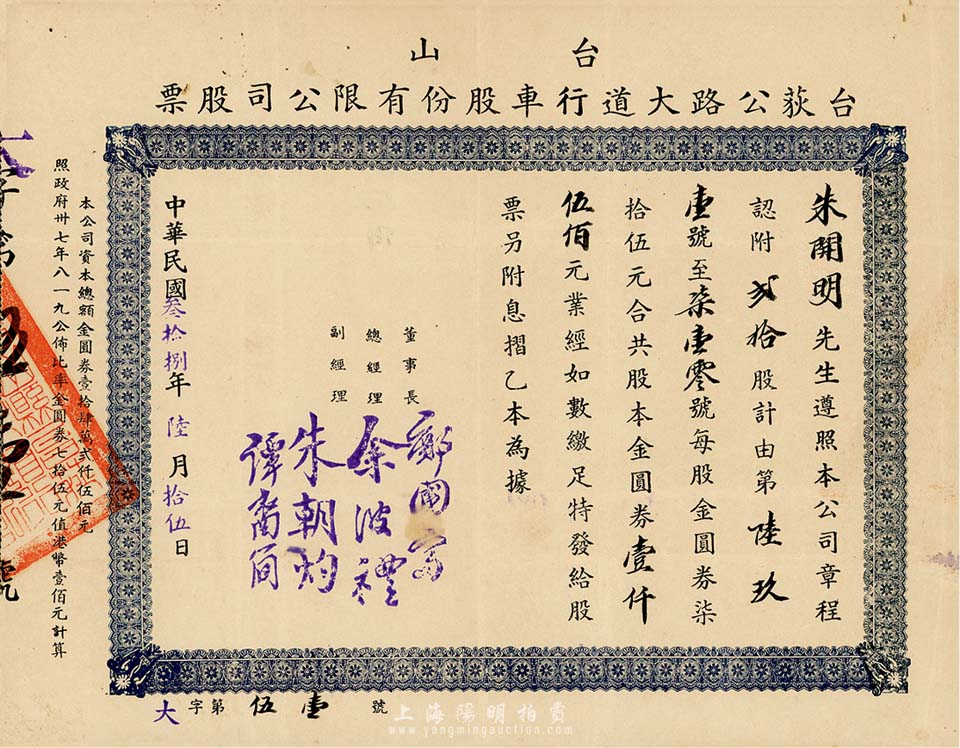 台山
台荻公路大道行車股份有限公司股票
朱開明先生遵照本公司章程
認附貳拾股計由第陸玖
壹號至柒壹零號每股金圓券柒
拾伍元合共股本金圓券壹仟
伍佰元業經如數繳足特發給股
票另附息摺乙本為據
董事長
總經理
副經理
鄭國
余波禮
朱朝灼
譚裔
中華民國叁拾捌年陸月拾伍日
本公司資本總額金圓券壹拾肆萬貳仟伍佰元
照政府卅七年八一九公佈比率金圓券七拾伍元值港幣壹佰元計算
號
大字第伍壹號
上海陽明拍賣
www.yangmingauction.com